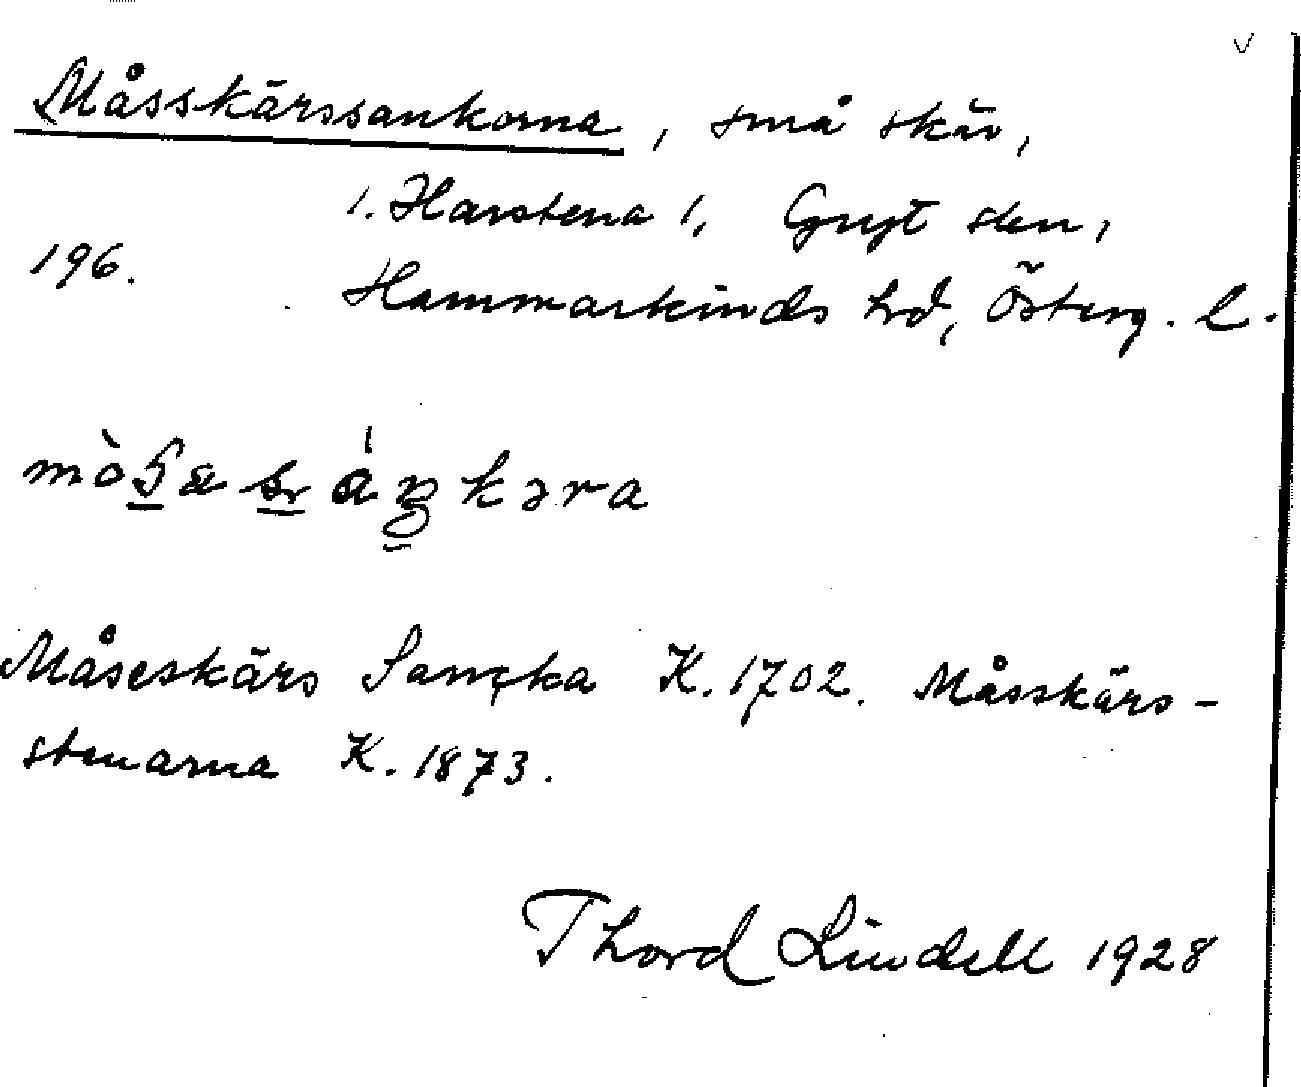 Måsskärssankorna, små skär,
1. Harstena 1, Gryt skn,
196.
Hammarkinds hrd, Österg. l.
Måseskärs Sancka K. 1702. Måsskärs-
stenarna K. 1873.
Thord Lindell 1928